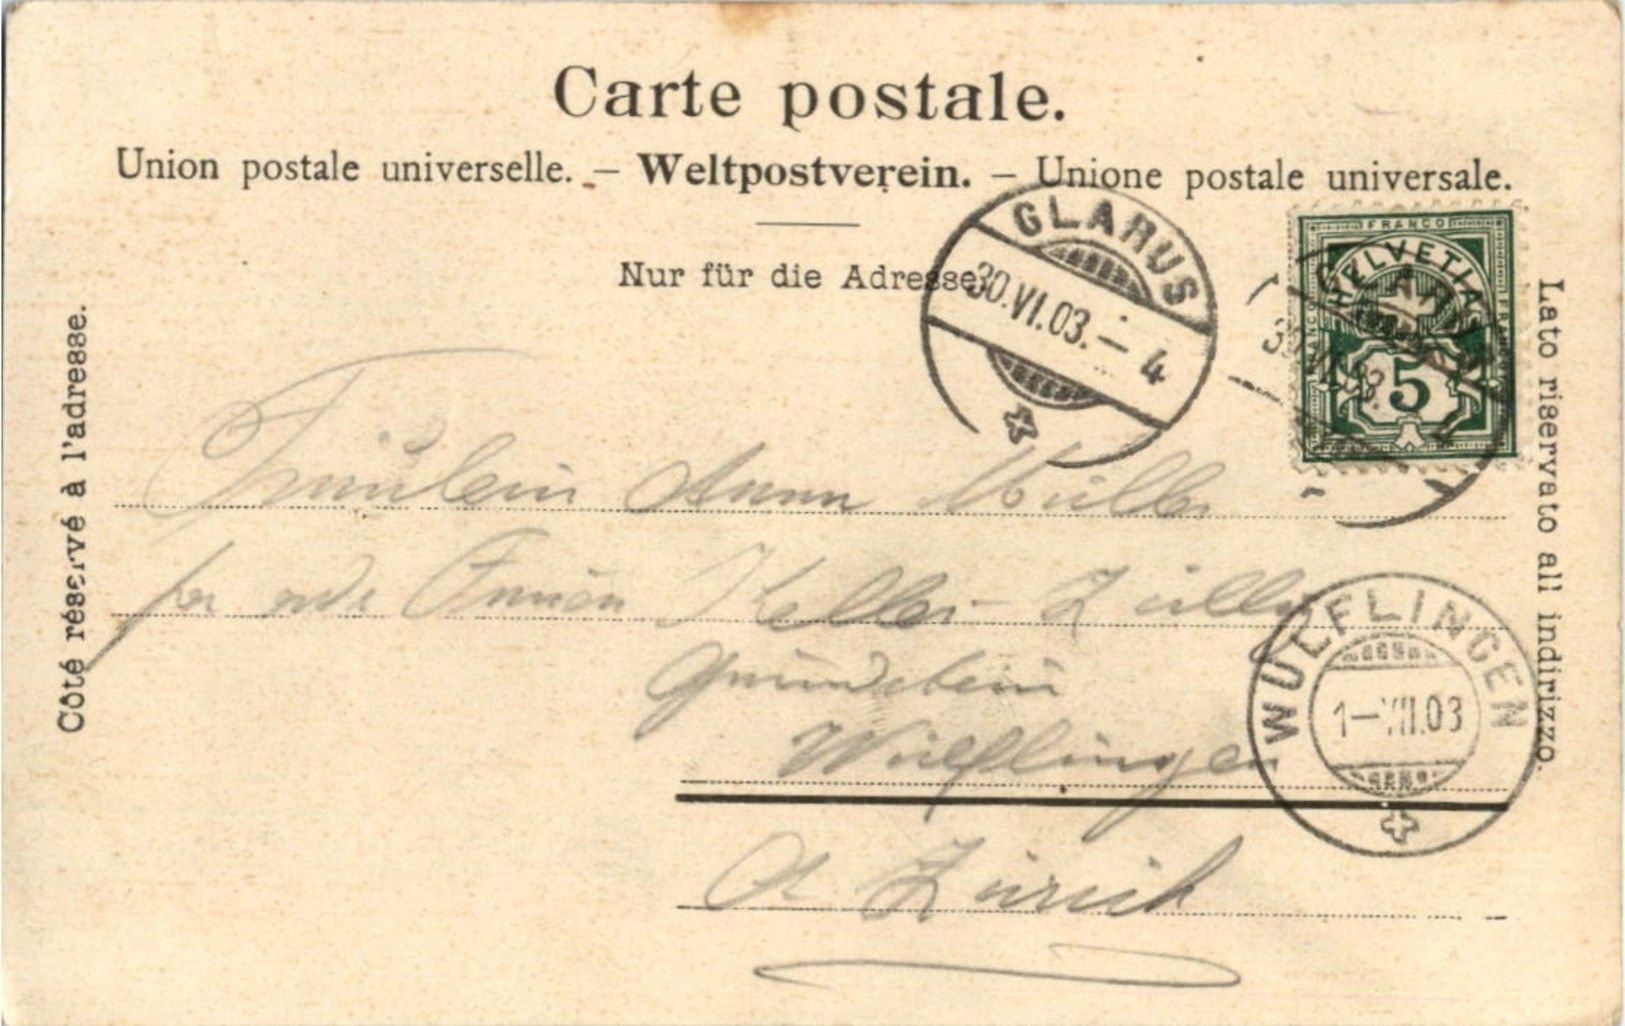 Carte postale.
Union postale universelle. – Weltpostverein. – Unione postale universale.
Nur für die Adresse.
Côté réservé à l'adresse.
Lato riservato all indirizzo.
GLARUS
30.VI.03.–4
FRANCO
HELVETIA
5
GLARUS
Fräulein Anna Müller
Keller-
Wülflingen
Zürich
WÜLFLINGEN
1–VII.03